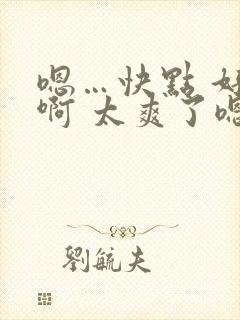 嗯…快點 好
啊 太爽了嗯
劉毓夫